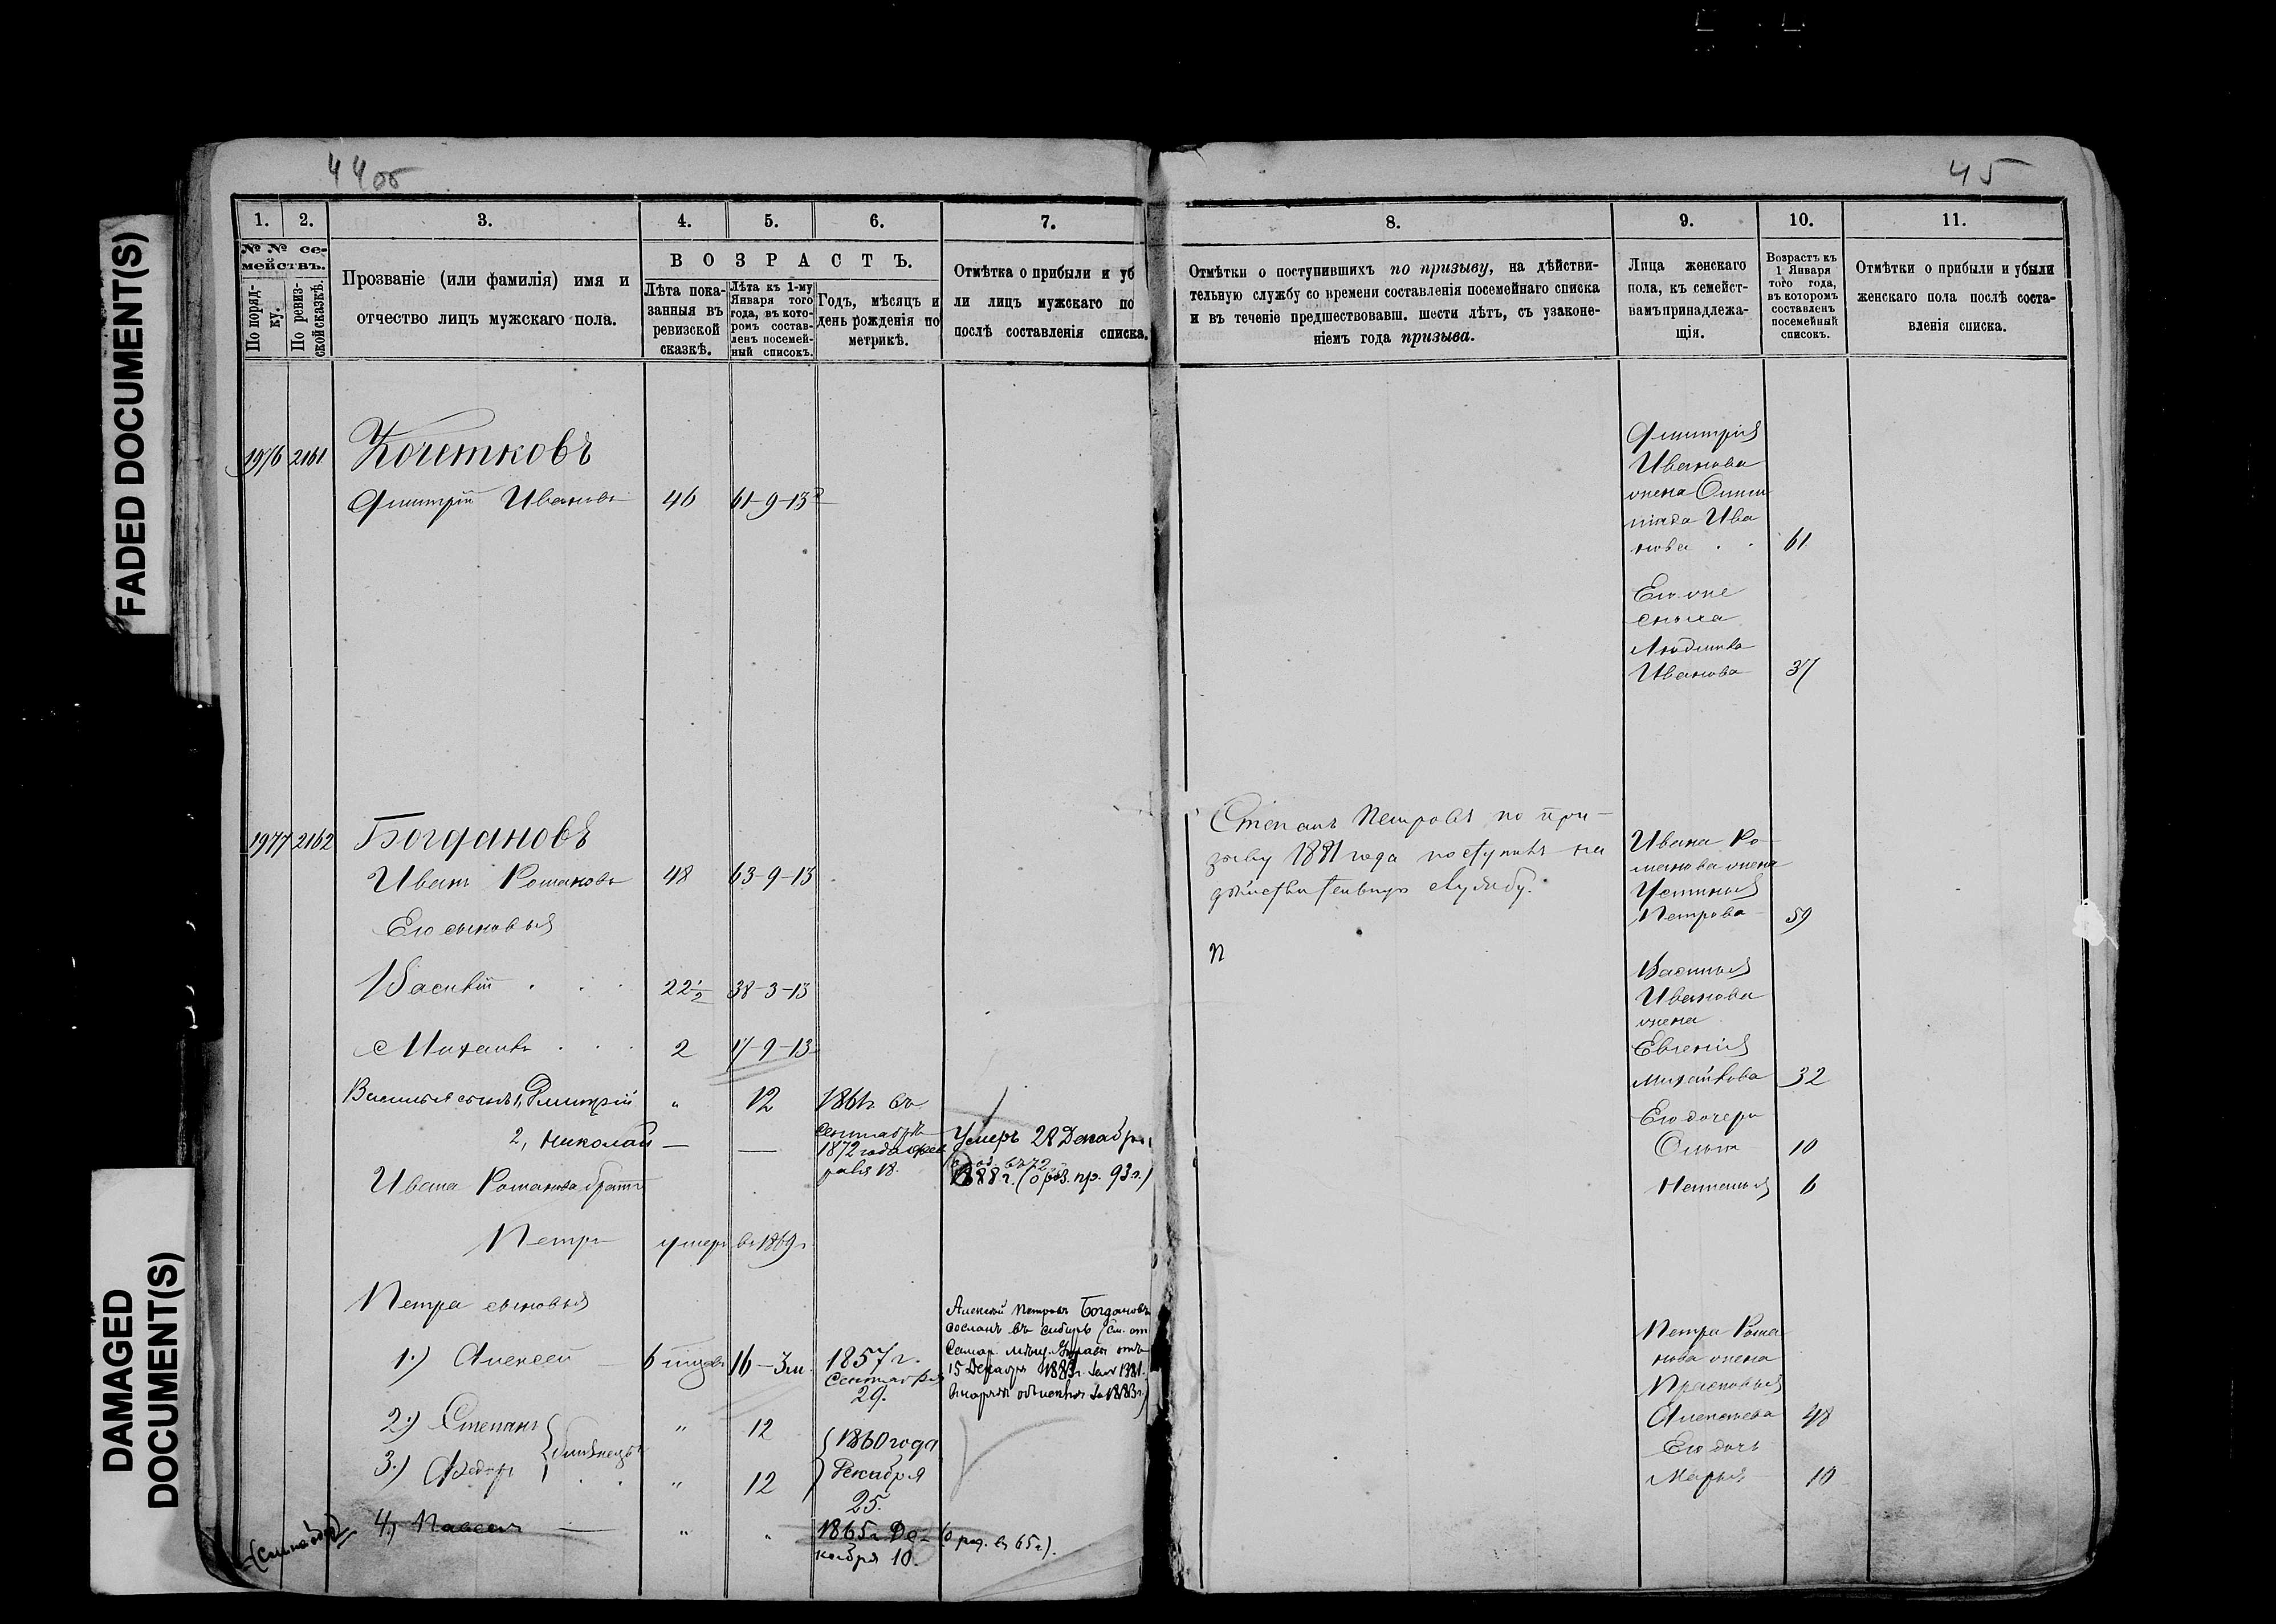 FADED DOCUMENT(S)
DAMAGED
DOCUMENT(S)
44 об
1.
2.
3.
4.
5.
6.
7.
№ № се-
мействъ.
По поряд-
ку.
По ревиз-
ской сказкѣ.
Прозваніе (или фамилія) имя и
отчество лицъ мужскаго пола.
ВОЗРАСТЪ.
Лѣта пока-
занныя въ
ревизской
сказкѣ.
Лѣта къ 1-му
Января того
года, въ кото-
ромъ состав-
ленъ посемей-
ный списокъ.
Годъ, мѣсяцъ и
день рожденія по
метрикѣ.
Отмѣтка о прибыли и уб
ли лицъ мужскаго по
послѣ составленія списка.
1976 2161 Кочетковъ
Дмитрій Ивановъ 46 61-9-13
1977 2162 Богдановъ
Иванъ Романовъ 48 63-9-13
Его сыновья
Василій 22½ 38-3-13
Михаилъ 2 17-9-13
Василья сынъ 1, Дмитрій " 12 1861г. въ
сентябрѣ
2, Николай — — 1872 года фев
раля 18.
Умеръ 28 Декабря
1888 г. (о рож. пр. 93 г.)
Ивана Романова братъ
Петръ умеръ въ 1869г
Петра сыновья
1.) Алексей 16-3м. 1857 г.
Сентября
29.
Алексей Петровъ Богдановъ
сосланъ въ сибирь (см. от
Самар. мѣщ. Управы отъ
15 Декабря
2.) Степанъ " 12
3.) Федоръ близнецы " 12
1860 года
Декабря
25.
4.) Павелъ — " " 1865г. Де-
кабря 10.
(о рож. въ 65 г).
45
8.
9.
10.
11.
Отмѣтки о поступившихъ по призыву, на дѣйстви-
тельную службу со времени составленія посемейнаго списка
и въ теченіе предшествовавш. шести лѣтъ, съ узаконе-
ніемъ года призыва.
Лица женскаго
пола, къ семейст-
вамъ принадлежа-
щія.
Возрастъ къ
1 Января
того года,
въ которомъ
составленъ
посемейный
списокъ.
Отмѣтки о прибыли и убыли
женскаго пола послѣ соста-
вленія списка.
Дмитрія
Иванова
жена Олим
піада Ива
нова 61
Людмила
Иванова 37
Степанъ Петровъ по при-
зыву 1881 года поступилъ на
дѣйствительную службу.
Ивана Ро-
манова жена
Устинья
Петрова 59
Василья
Иванова
жена
Евгенія
Михайлова 32
Его дочери
Ольга 10
Наталья 6
Петра Рома
нова жена
Прасковья
Алексеева 48
Его дочь
Марья 10